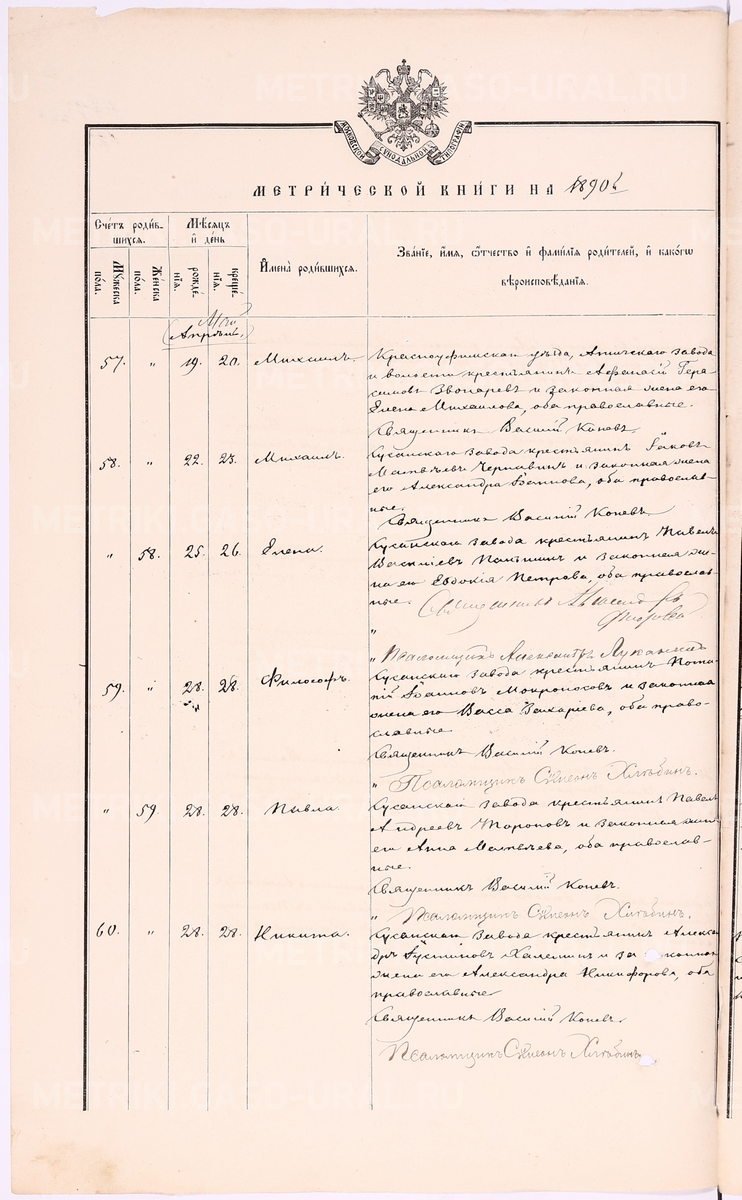 METRIKI.GASO-URAL.RU
МОСКОВСКОЙ СѴНОДАЛЬНОЙ ТИПОГРАФІИ
МЕТРИ́ЧЕСКОЙ КНИ́ГИ НА 1890 г.
Сче́тъ роди́вшихся.
Му́жеска по́ла.
Же́нска по́ла.
Мѣ́сяцъ и҆ де́нь
рожде́нїя.
креще́нїя.
И҆мена̀ роди́вшихся.
Зва́нїе, и҆́мя, ѻ҆́тчество и҆ фами́лїя роди́телей, и҆ како́гѡ
вѣроисповѣ́данїя.
Май
(Апрѣль)
57. " 19. 20. Михаилъ. Красноуфимскаго уѣзда, Атигскаго завода
и волости крестьянинъ Афанасій Гера-
симовъ Звонаревъ и законная жена его
Елена Михаилова, оба православные.
Священникъ Василій Коневъ.
58. " 22. 23. Михаилъ. Сусанскаго завода крестьянинъ Іаковъ
Матвѣевъ Чернавинъ и законная жена
его Александра Іоаннова, оба православ-
ные.
Священникъ Василій Коневъ.
" 58. 25. 26. Елена. Сусанскаго завода крестьянинъ Павелъ
Василіевъ и законная же-
на его Евдокія Петрова, оба православ-
ные.
Священникъ Александръ
"
" Псаломщикъ Александръ
59. " 28. 28. Философъ. Сусанскаго завода крестьянинъ Пота-
пій Іоанновъ Мокроносовъ и законная
жена его Васса Захаріева, оба право-
славные.
Священникъ Василій Коневъ.
" Псаломщикъ Сѵмеонъ Хлѣбинъ.
" 59. 28. 28. Павла. Сусанскаго завода крестьянинъ Павелъ
Андреевъ Топоровъ и законная жена
его Анна Матвѣева, оба православ-
ные.
Священникъ Василій Коневъ.
" Псаломщикъ Сѵмеонъ Хлѣбинъ.
60. " 28. 28. Никита. Сусанскаго завода крестьянинъ Алексан-
дръ Іустиновъ и законная
жена его Александра Никифорова, оба
православные
Священникъ Василій Коневъ.
Псаломщикъ Сѵмеонъ Хлѣбинъ